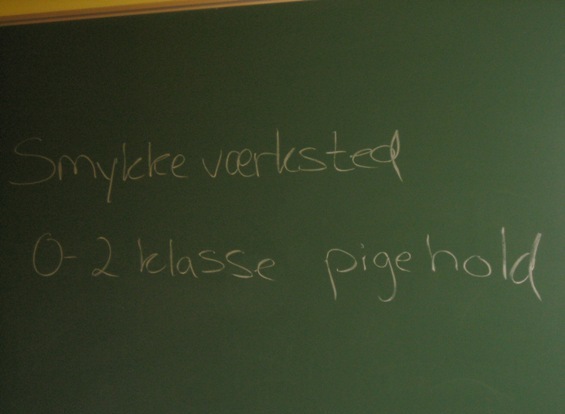 Smykke værksted
0-2 klasse pigehold